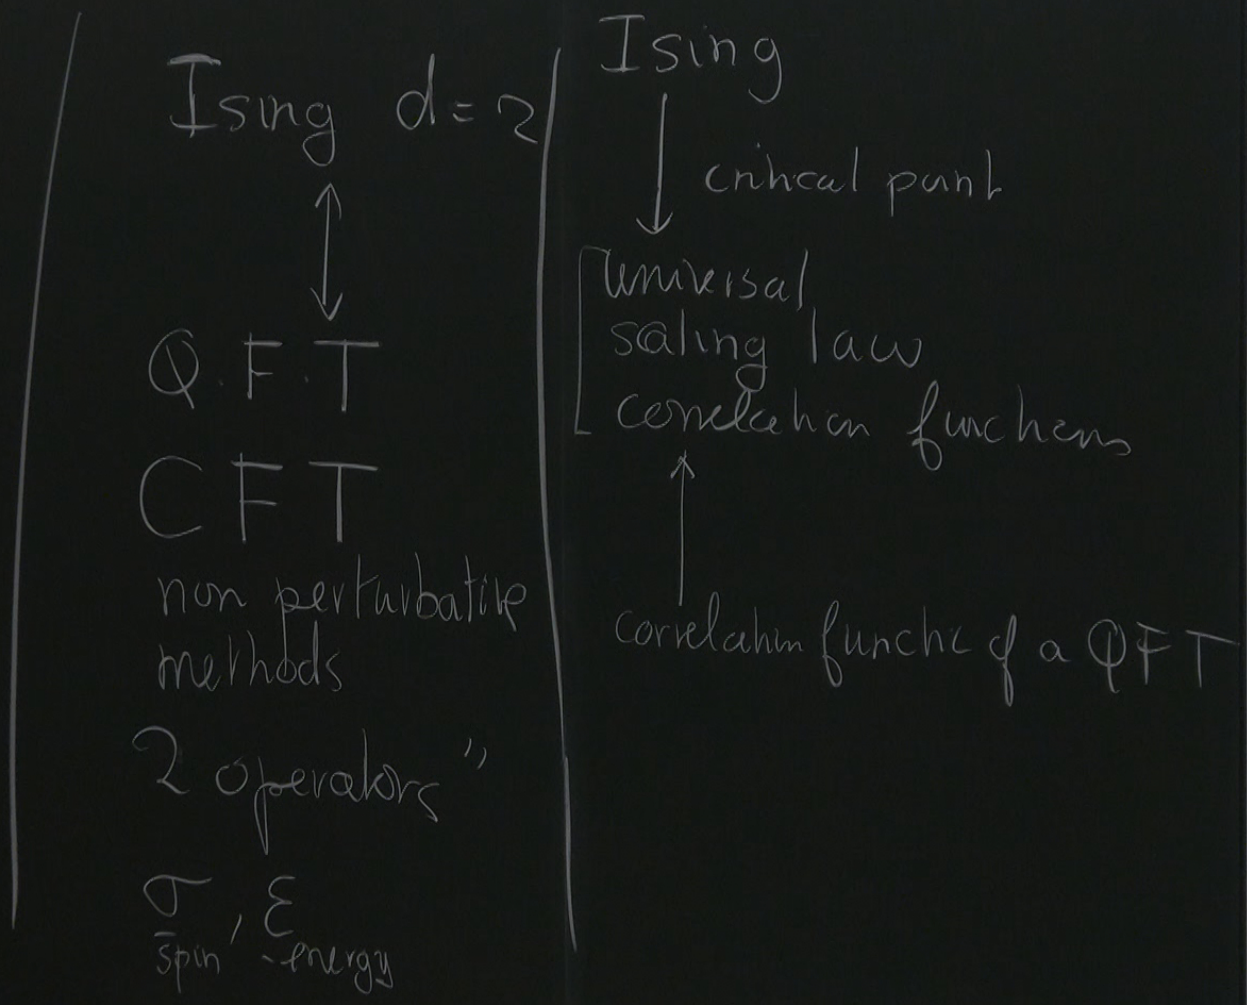 Ising d=2
Q.F.T
CFT
non perturbative
methods
2 operators"
σ, ε
spin energy
Ising
critical point
universal
scaling law
correlation functions
correlation functio of a QFT